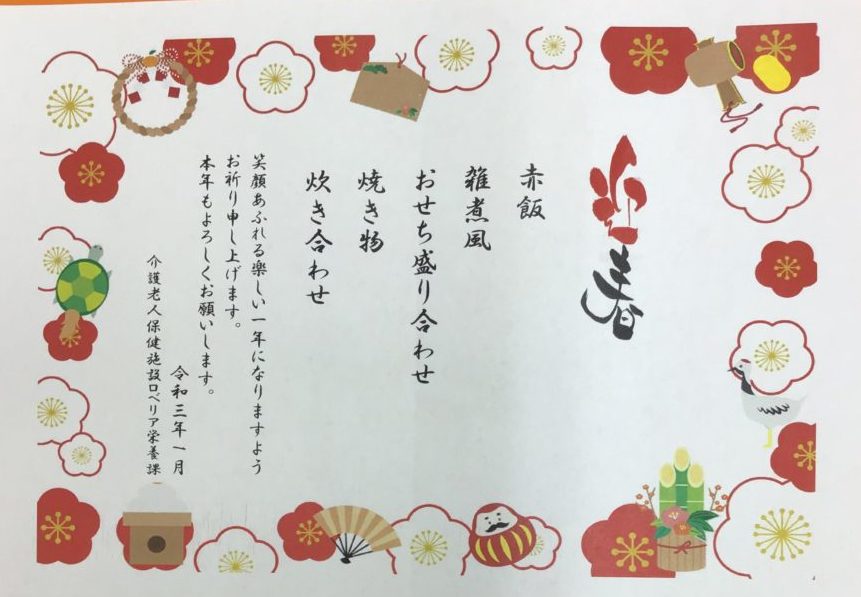 迎春
赤飯
雑煮風
おせち盛り合わせ
焼き物
炊き合わせ
笑顔あふれる楽しい一年になりますよう
お祈り申し上げます。
本年もよろしくお願いします。
令和三年一月
介護老人保健施設ロベリア栄養課